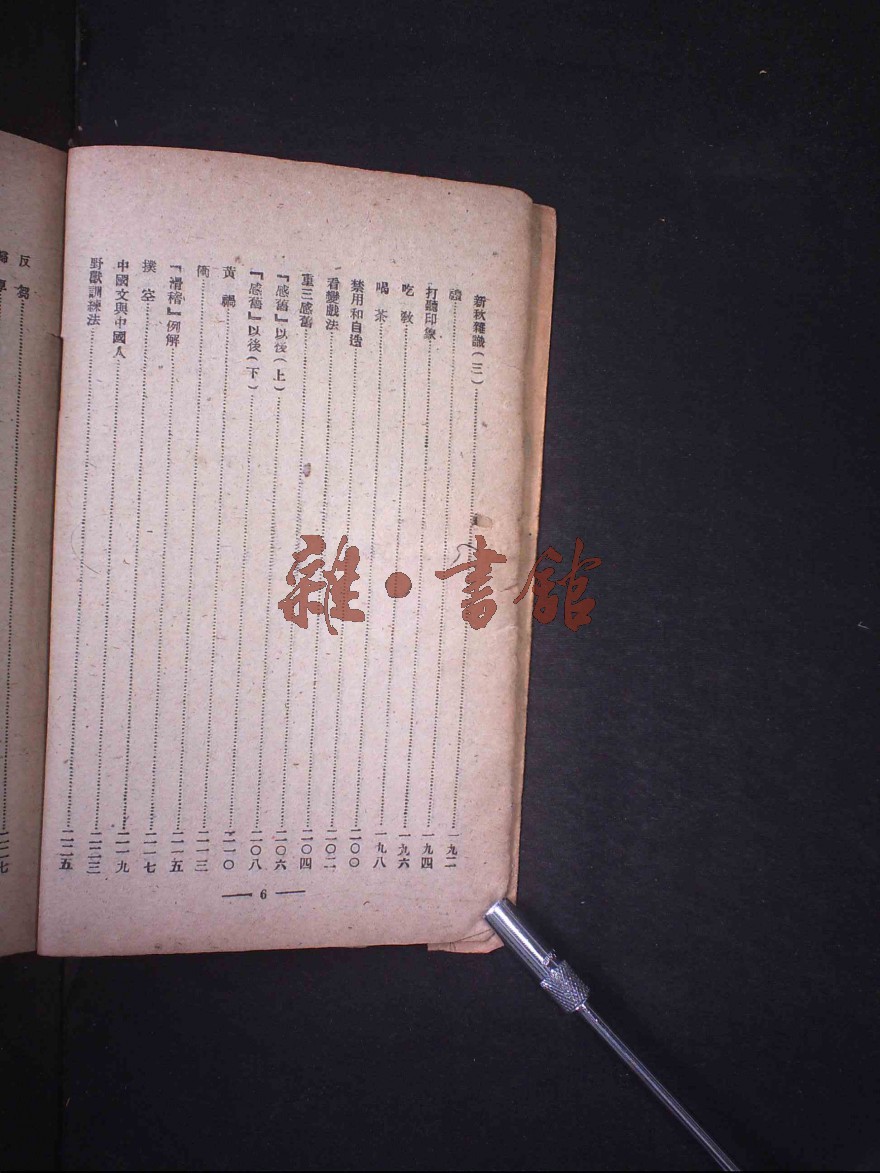 新秋雜識(三)……一九二
禮……一九四
打聽印象……一九六
吃教……一九八
喝茶……二〇〇
禁用和自造……二〇二
看變戲法……二〇四
重三感舊……二〇六
『感舊』以後(上)……二〇八
『感舊』以後(下)……二一〇
黃禍……二一三
衝……二一五
『滑稽』例解……二一七
撲空……二一九
中國文與中國人……二二三
野獸訓練法……二二五
— 6 —
反芻……二二七
雜·書館